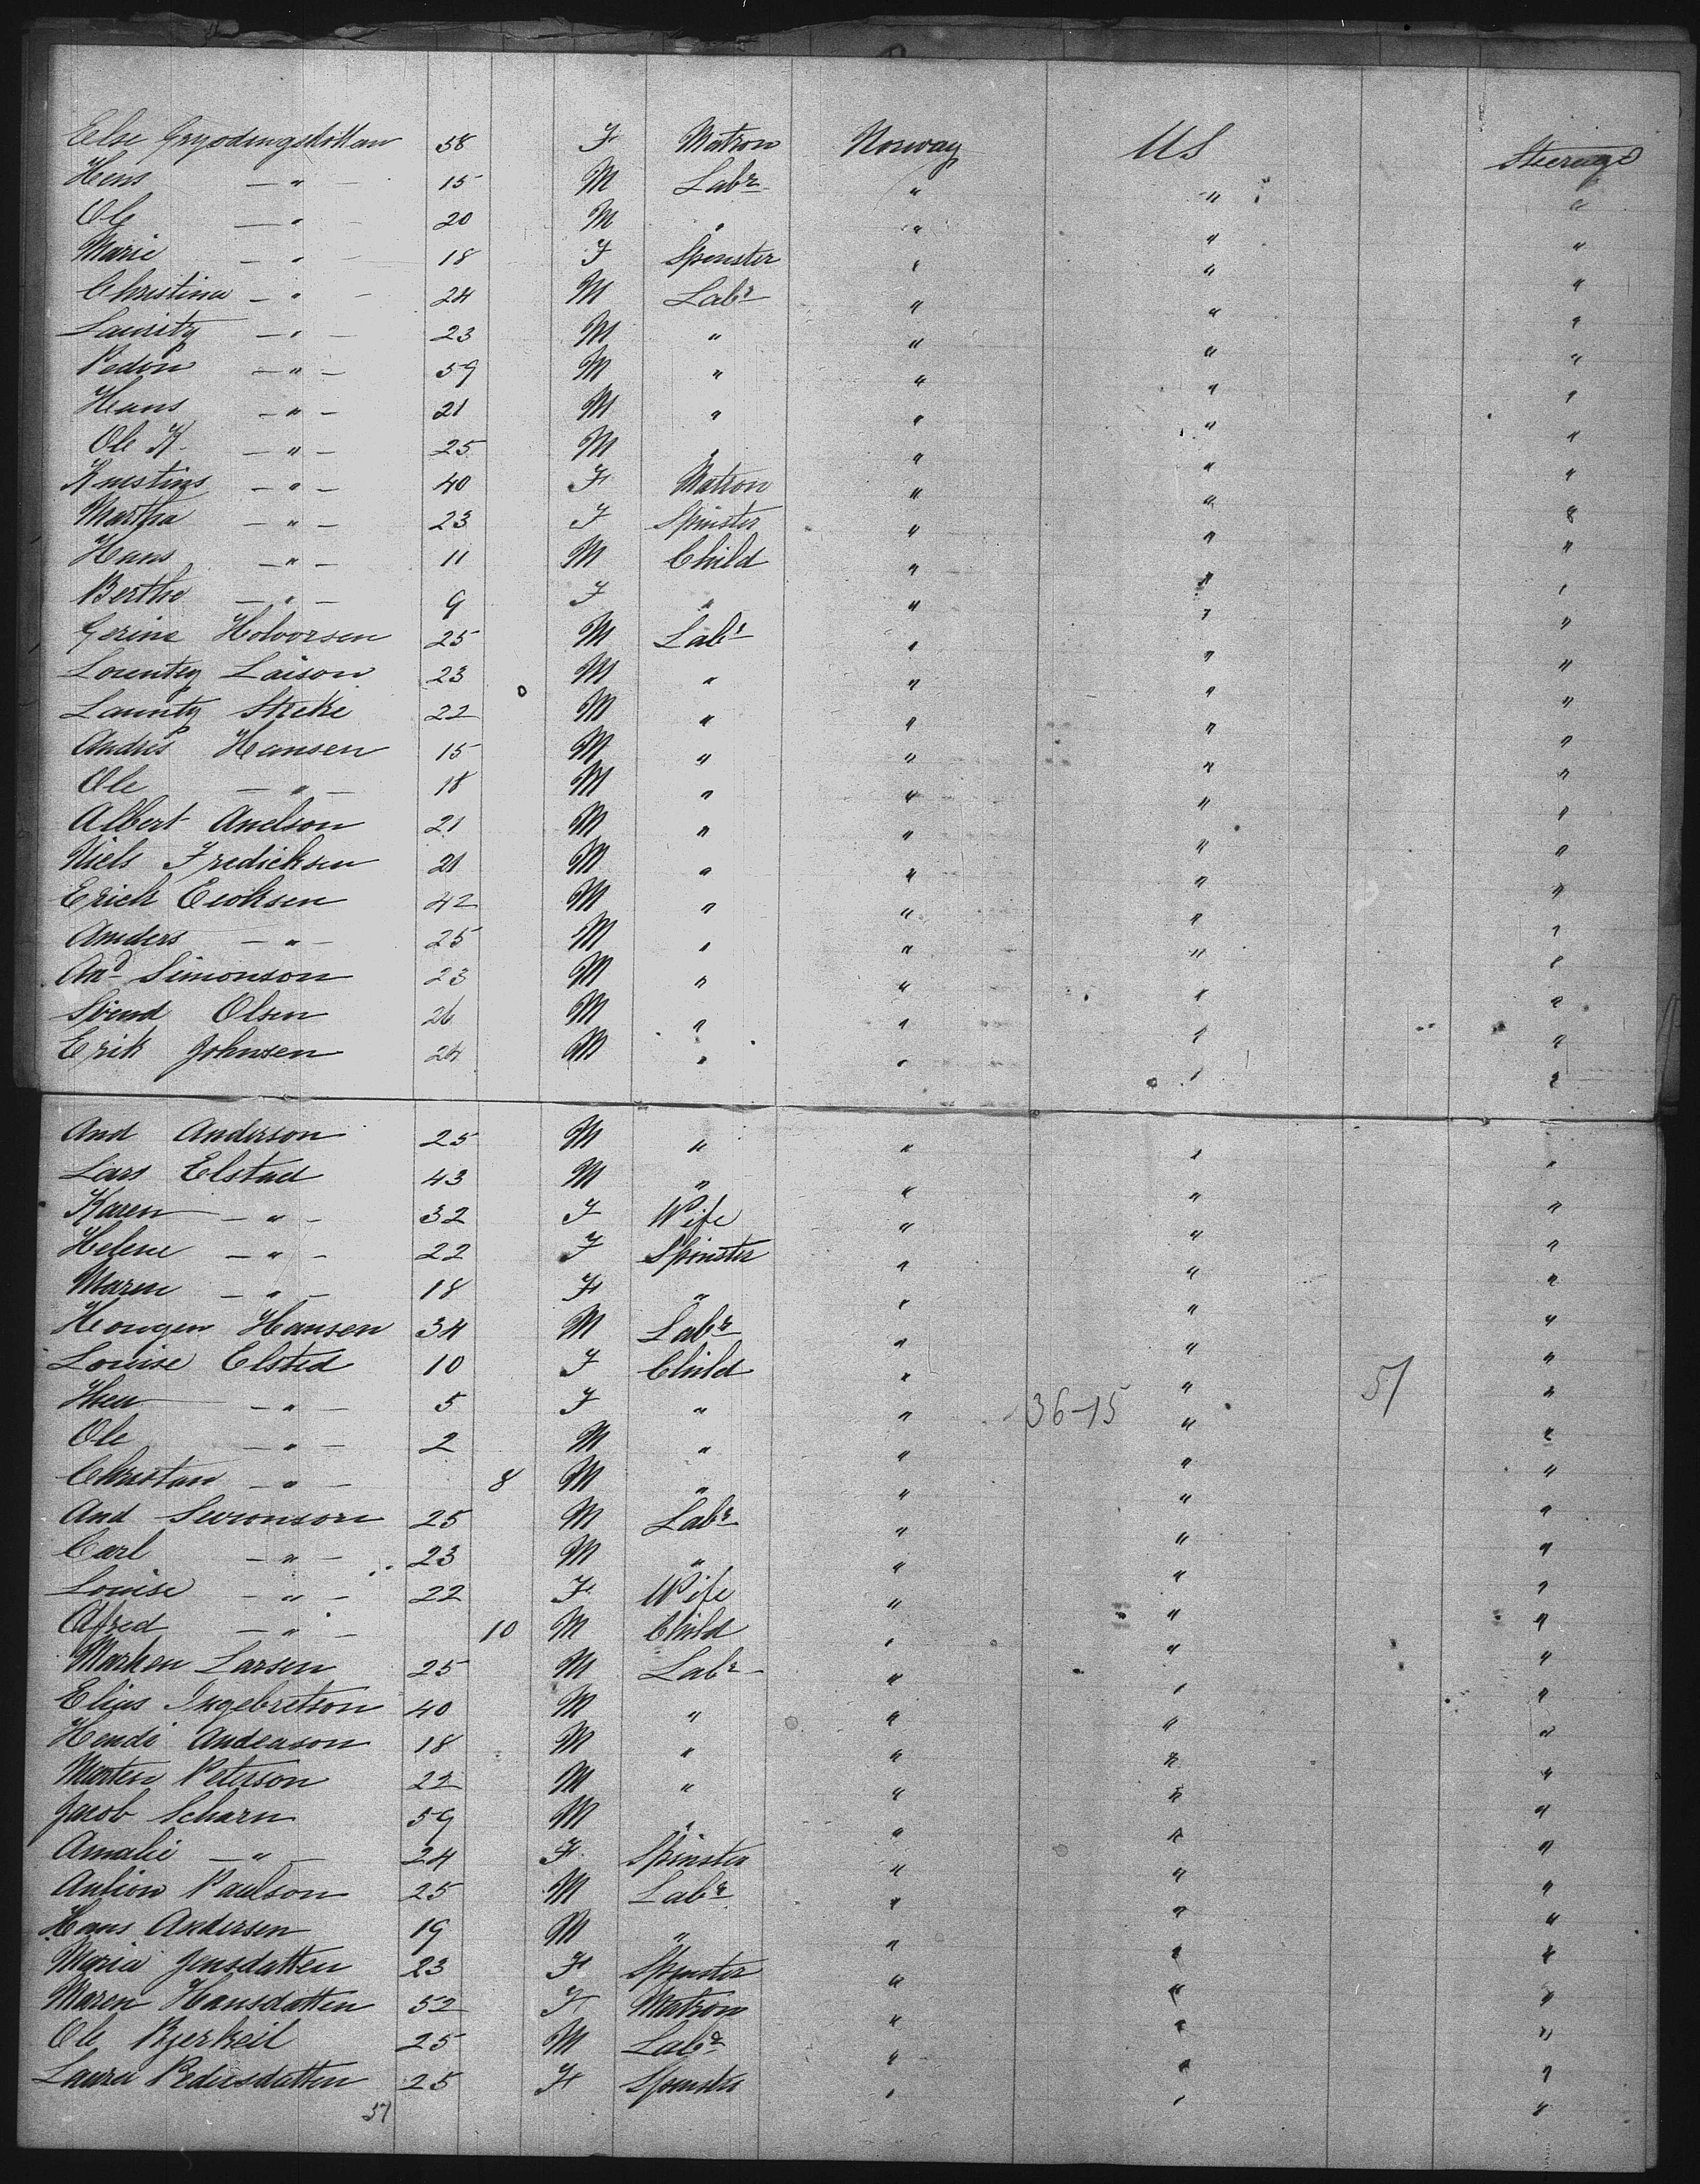 Else 58 F Matron Norway US Steerage
Hens — " — 15 M Labr " " "
Ole — " — 20 M " " " "
Marie — " — 18 F Spinster " " "
Christina — " — 24 M Labr " " "
Lauritz — " — 23 M " " " "
Pedon — " — 59 M " " " "
Hans — " — 21 M " " " "
Ole K — " — 25 M " " " "
Kristins — " — 40 F Matron " " "
Martha — " — 23 F Spinster " " "
Hans — " — 11 M Child " " "
Berthe — " — 9 F " " " "
Gerine Holvorsen 25 M Labr " " "
Louritz Laison 23 M " " " "
Lauritz Streke 22 M " " " "
Andres Hansen 15 M " " " "
Ole — " — 18 M " " " "
Albert Anelson 21 M " " " "
Niels Fredicksen 21 M " " " "
Erick Ericksen 42 M " " " "
Anders — " — 25 M " " " "
And Simonson 23 M " " " "
Svend Olsen 26 M " " " "
Erik Johnsen 24 M " " " "
And Anderson 25 M " " " "
Lars Elstad 43 M " " " "
Karen — " — 32 F Wife " " "
Helene — " — 22 F Spinster " " "
Maren — " — 18 F " " " "
Howgen Hansen 34 M Labr " " "
Louise Elsted 10 F Child " " "
Thea — " — 5 F " " 36-15 " 51 "
Ole — " — 2 M " " " "
Christan — " — 8 M " " " "
And Swonson 25 M Labr " " "
Carl — " — 23 M " " " "
Louise — " — 22 F Wife " " "
Alfred — " — 10 M Child " " "
Marken Larsen 25 M Labr " " "
Elias Ingebretson 40 M " " " "
Hendi Andeason 18 M " " " "
Marten Peterson 22 M " " " "
Jacob Scharn 59 M " " " "
Amalie — " — 24 F Spinster " " "
Antion Paulson 25 M Labr " " "
Hans Andersen 19 M " " " "
Maria Jensdatten 23 F Spinster " " "
Maren Hansdatten 52 F Matron " " "
Ole Bjerkeil 25 M Labr " " "
Laura Pedersdatten 25 F Spinster " " "
51